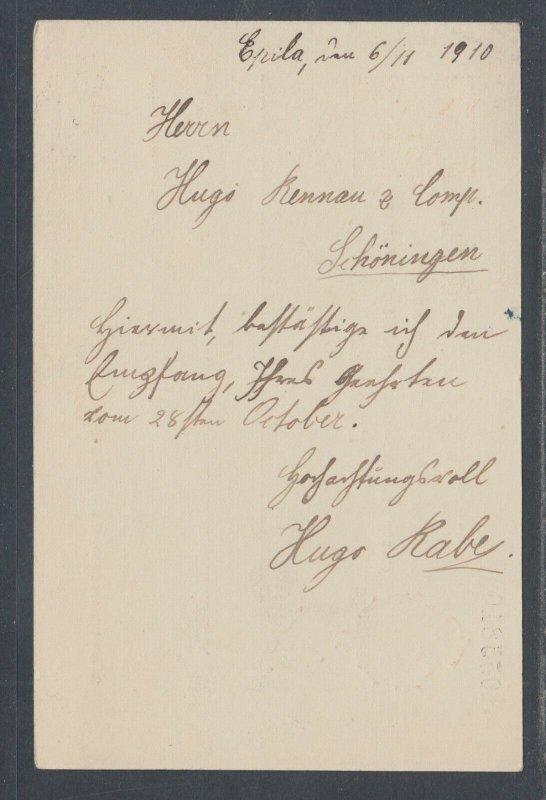 Epila, den 6/11 1910
Herrn
Hugo Rennau & Comp.
Schöningen
Hiermit, bestättige ich den
Empfang, Ihres Geehrten
vom 28sten October.
Hochachtungsvoll
Hugo Rabe.